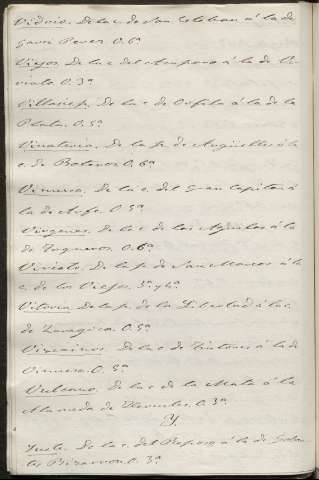 Vidrio. De la c. de San Esteban á la de
Garci Perez. O. 6ª
Viejos. De la c. del Amparo á la de Vi-
riato. O. 3ª
Villasiep. De la c. de Orfila á la de la
Plata. O. 5ª
Vinateria. De la p. de Argüelles á la
c. de Boteros. O. 6ª
Vinuesa. De la c. del Gran Capitan á
la de Arfe. O. 5ª
Virgenes. De la c. de los Aguilas á la
de Fragueros. O. 6ª
Viriato. De la p. de San Marcos á la
c. de los Viejos. 3ª y 4ª
Vitoria. De la p. de la Libertad á la c.
de Zaragoza. O. 5ª
Vizcainos. De la c. de Tintores á la de
Vinuesa. O. 5ª
Vulcano. De la c. de la Mata á la
Alameda de Hercules. O. 3ª
Y.
Yuste. De la c. del Reposo á la de
Bizarron. O. 3ª